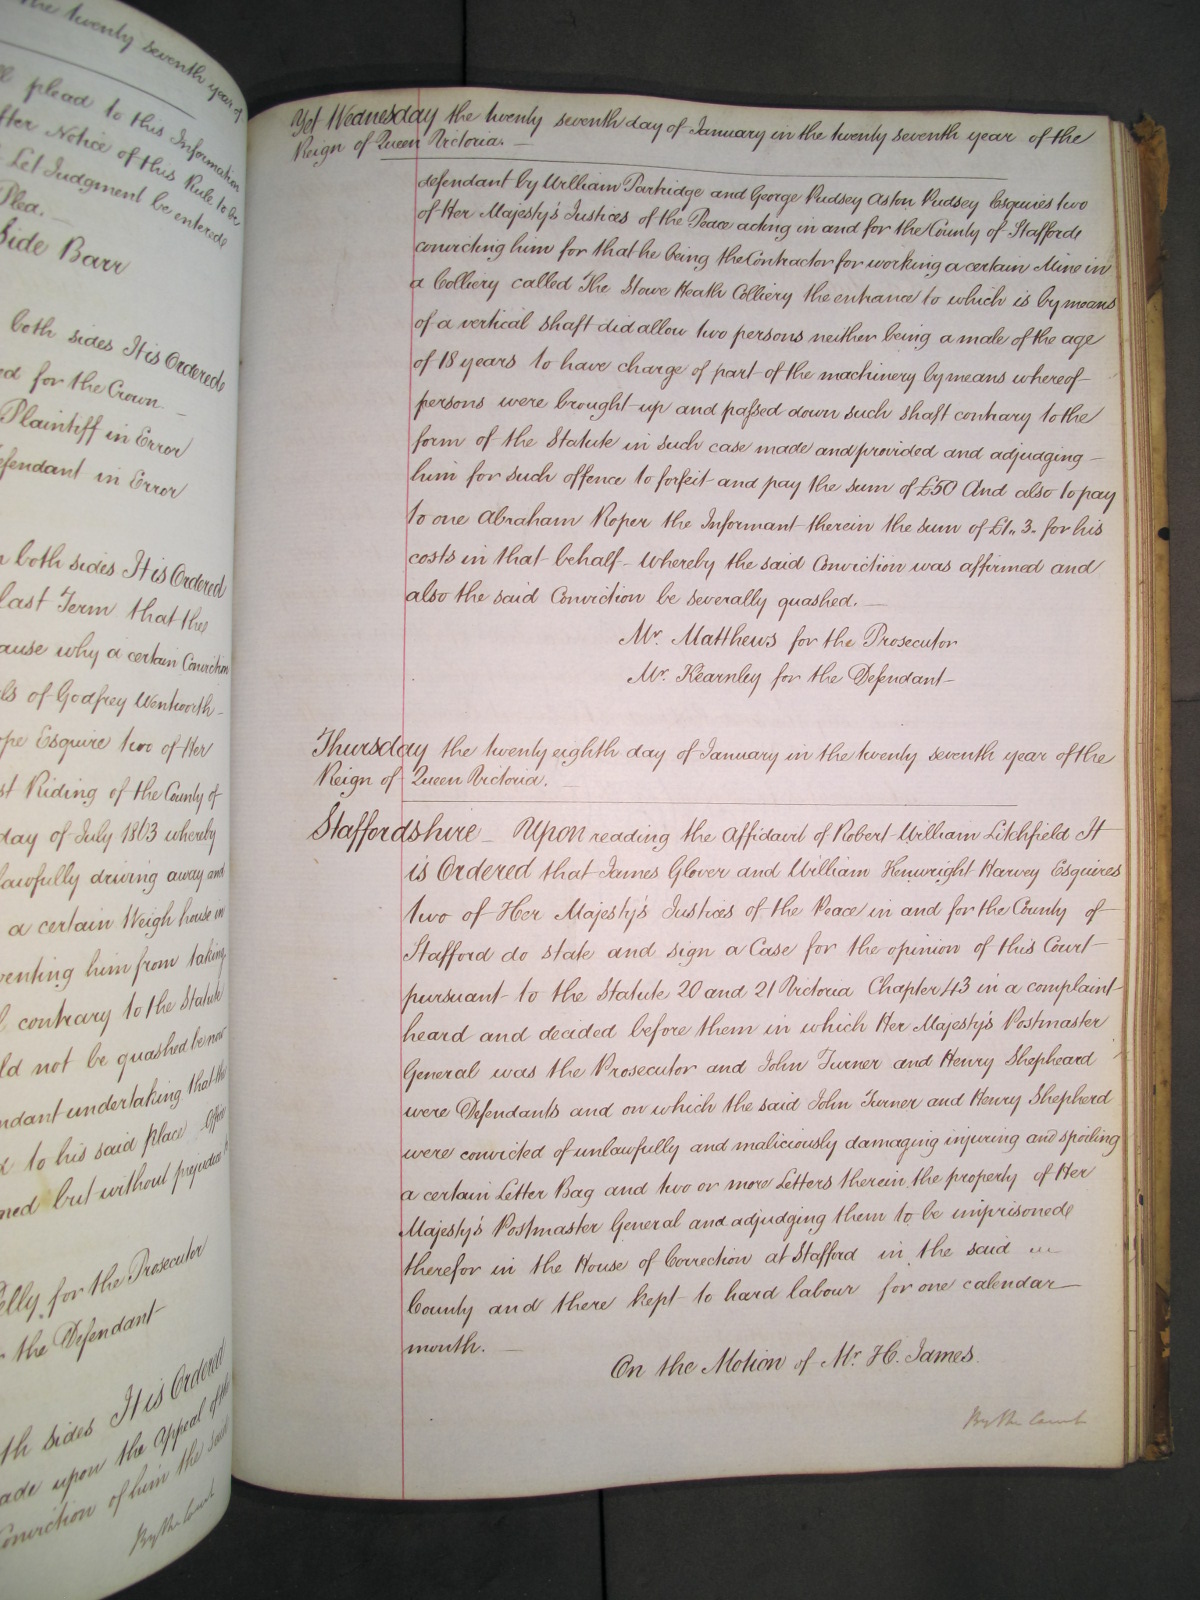 the twenty seventh year of
plead to this Information
after Notice of this Rule to be
Let Judgment be entered
Plea.
Side Barr
both sides It is Ordered
for the Crown
Plaintiff in Error
defendant in Error
both sides It is Ordered
last Term that the
cause why a certain Conviction
of Godfrey Wentworth
Esquire two of Her
Riding of the County of
day of July 1863 whereby
lawfully driving away and
a certain Weigh house in
venting him from taking
contrary to the Statute
not be quashed be now
defendant undertaking that the
to his said place
but without prejudice
for the Prosecutor
the Defendant
both sides It is Ordered
made upon the Appeal of the
Conviction of him the said
By the Court
Yet Wednesday the twenty seventh day of January in the twenty seventh year of the
Reign of Queen Victoria.
defendant by William Partridge and George Pudsey Aston Pudsey Esquires two
of Her Majesty's Justices of the Peace acting in and for the County of Stafford
convicting him for that he being the Contractor for working a certain Mine in
a Colliery called The Stowe Heath Colliery the entrance to which is by means
of a vertical shaft did allow two persons neither being a male of the age
of 18 years to have charge of part of the machinery by means whereof
persons were brought up and passed down such shaft contrary to the
form of the Statute in such case made and provided and adjudging
him for such offence to forfeit and pay the sum of £50 And also to pay
to one Abraham Roper the Informant therein the sum of £1,, 3. for his
costs in that behalf whereby the said Conviction was affirmed and
also the said Conviction be severally quashed.
Mr. Matthews for the Prosecutor
Mr. Kearnley for the Defendant
Thursday the twenty eighth day of January in the twenty seventh year of the
Reign of Queen Victoria.
Staffordshire Upon reading the Affidavit of Robert William Litchfield It
is Ordered that James Glover and William Kenwright Harvey Esquires
two of Her Majesty's Justices of the Peace in and for the County of
Stafford do state and sign a Case for the opinion of this Court
pursuant to the Statute 20 and 21 Victoria Chapter 43 in a complaint
heard and decided before them in which Her Majesty's Postmaster
General was the Prosecutor and John Turner and Henry Shepheard
were Defendants and on which the said John Turner and Henry Shepherd
were convicted of unlawfully and maliciously damaging injuring and spoiling
a certain Letter Bag and two or more Letters therein the property of Her
Majesty's Postmaster General and adjudging them to be imprisoned
therefor in the House of Correction at Stafford in the said
County and there kept to hard labour for one calendar
month.
On the Motion of Mr. H. James.
By the Court